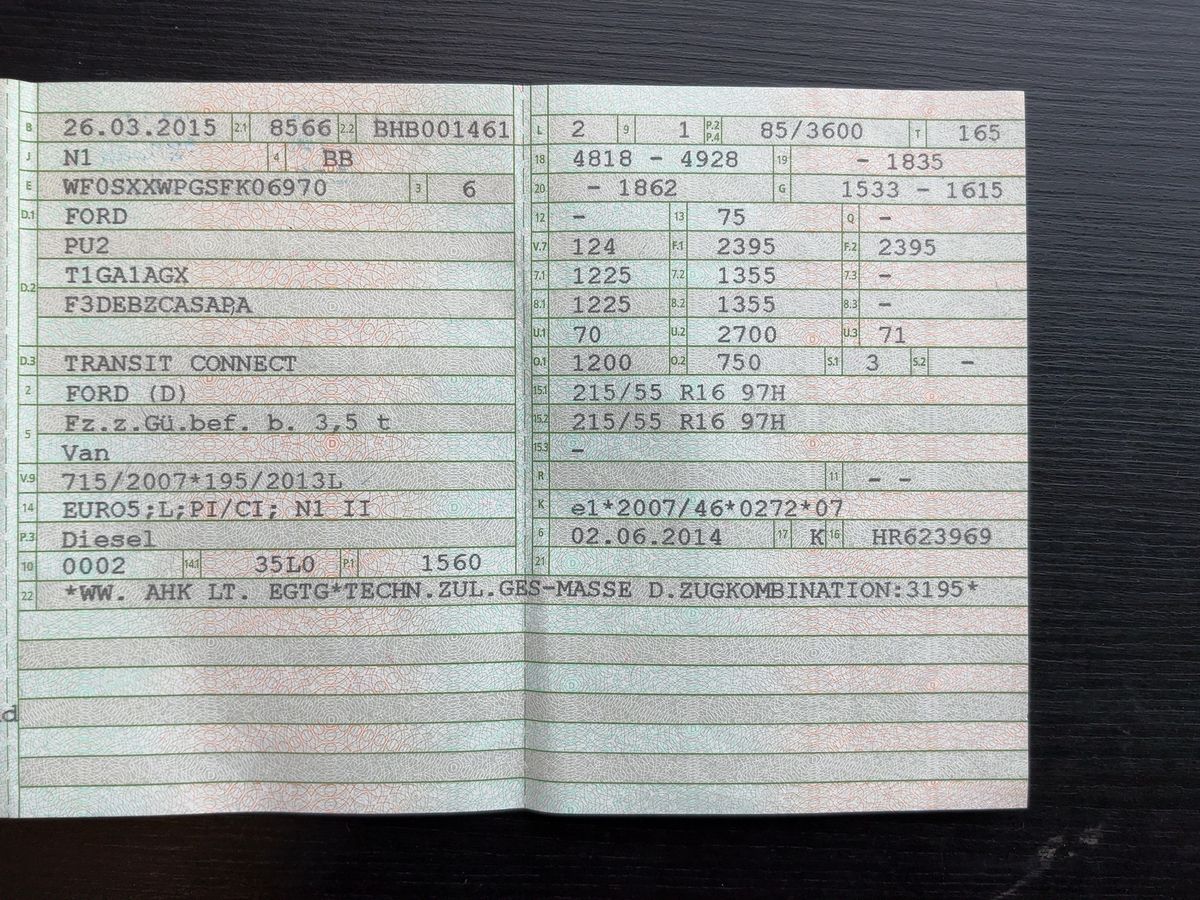 B 26.03.2015 2.1 8566 2.2 BHB001461
J N1 4 BB
E WF0SXXWPGSFK06970 3 6
D.1 FORD
PU2
D.2 T1GA1AGX
F3DEBZCASAPA
D.3 TRANSIT CONNECT
2 FORD (D)
5 Fz.z.Gü.bef. b. 3,5 t
Van
V.9 715/2007*195/2013L
14 EURO5;L;PI/CI; N1 II
P.3 Diesel
10 0002 14.1 35L0 P.1 1560
L 2 9 1 P.2 P.4 85/3600 T 165
18 4818 - 4928 19 - 1835
20 - 1862 G 1533 - 1615
12 - 13 75 Q -
V.7 124 F.1 2395 F.2 2395
7.1 1225 7.2 1355 7.3 -
8.1 1225 8.2 1355 8.3 -
U.1 70 U.2 2700 U.3 71
O.1 1200 O.2 750 S.1 3 S.2 -
15.1 215/55 R16 97H
15.2 215/55 R16 97H
15.3 -
R 11 - -
K e1*2007/46*0272*07
6 02.06.2014 17 K 16 HR623969
21
22 *WW. AHK LT. EGTG*TECHN.ZUL.GES-MASSE D.ZUGKOMBINATION:3195*
d